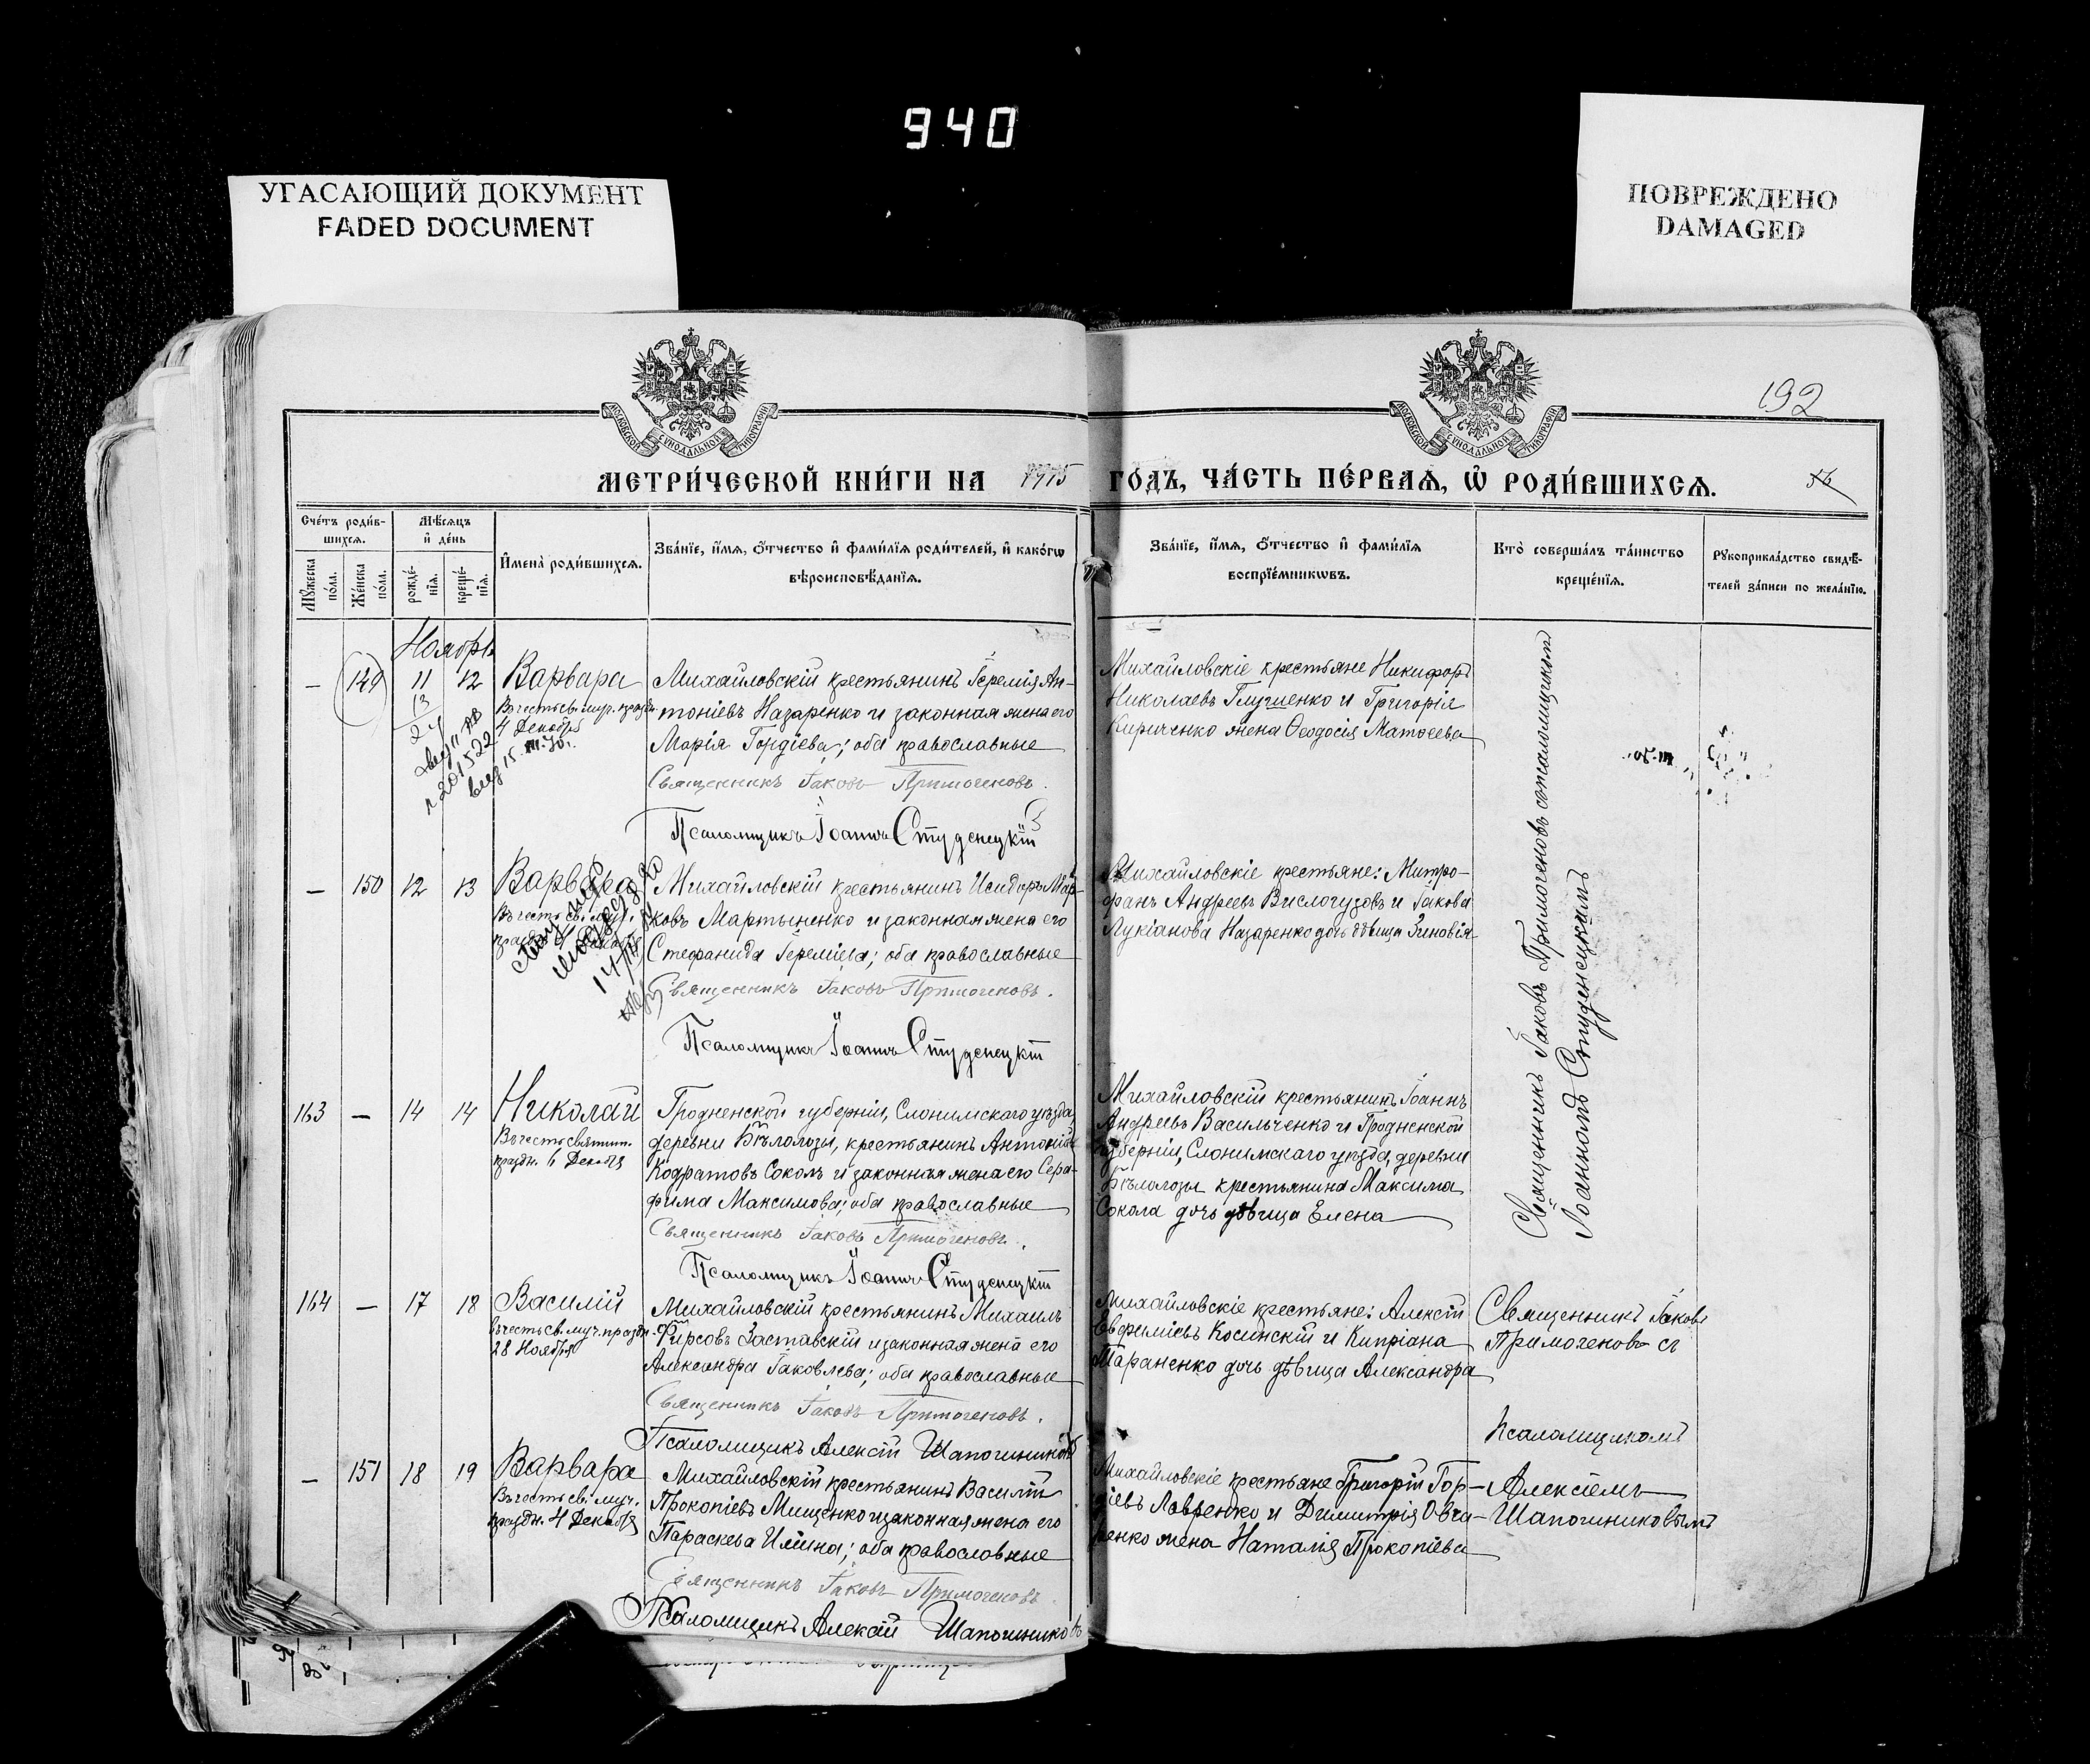 940
УГАСАЮЩИЙ ДОКУМЕНТ
FADED DOCUMENT
ПОВРЕЖДЕНО
DAMAGED
МОСКОВСКОЙ СѴНОДАЛЬНОЙ ТИПОГРАФІИ
МОСКОВСКОЙ СѴНОДАЛЬНОЙ ТИПОГРАФІИ
192
МЕТРИ́ЧЕСКОЙ КНИ́ГИ НА 1915 ГО́ДЪ, ЧА́СТЬ ПЕ́РВАѦ, Ѡ҆ РОДИ́ВШИХСѦ.
56
Сче́тъ роди́в-
шихсѧ.
Мꙋжеска по́ла.
Же́нска по́ла.
Мѣ́сѧцъ
и҆ де́нь
рожде́-
нїѧ.
креще́-
нїѧ.
И҆мена̀ роди́вшихсѧ.
Зва́нїе, и҆́мѧ, ѻ҆́тчество и҆ фами́лїѧ роди́телей, и҆ како́гѡ
вѣ̀роисповѣ́данїѧ.
Зва́нїе, и҆́мѧ, ѻ҆́тчество и҆ фами́лїѧ
воспрїе́мникѡвъ.
Кто̀ соверша́лъ та́инство
креще́нїѧ.
Рꙋкоприкла́дство свидѣ́-
телей за́писи по жела́нїю.
Ноябрь
— 149 11 12 Варвара
Въ честь св. муч. праздн.
4 Декабря
13
24
Михайловскій крестьянинъ Іеремія Ан-
тоніевъ Назаренко и законная жена его
Марія Гордіева; оба православные
Священникъ Іаковъ Примогеновъ.
Псаломщикъ Іоаннъ Студенецкій
Михайловскіе крестьяне Никифоръ
Николаевъ Глущенко и Григорія
Кириченко жена Ѳеодосія Матѳеева
— 150 12 13 Варвара
Въ честь св. муч.
праздн. 4 Декабря
14/III
Михайловскій крестьянинъ Исидоръ Мар-
ковъ Мартыненко и законная жена его
Стефанида Іереміева; оба православные
Священникъ Іаковъ Примогеновъ.
Псаломщикъ Іоаннъ Студенецкій
Михайловскіе крестьяне: Митро-
фанъ Андреевъ Вислогузовъ и Іакова
Лукіанова Назаренко дочь дѣвица Зиновія
163 — 14 14 Николай
Въ честь святит.
праздн. 6 Декабря
Гродненской губерніи, Слонимскаго уѣзда,
деревни Бѣлолозы, крестьянинъ Антоній
Кодратовъ Соколъ и законная жена его Сера-
фима Максимова; оба православные
Священникъ Іаковъ Примогеновъ.
Псаломщикъ Іоаннъ Студенецкій
Михайловскій крестьянинъ Іоаннъ
Андреевъ Васильченко и Гродненской
губерніи, Слонимскаго уѣзда, деревни
Бѣлолозы крестьянина Максима
Сокола дочь дѣвица Елена
Священникъ Іаковъ Примогеновъ съ псаломщикомъ
Іоанномъ Студенецкимъ
164 — 17 18 Василій
въ честь св. муч. праздн.
28 Ноября
Михайловскій крестьянинъ Михаилъ
Фирсовъ Заставскій и законная жена его
Александра Іаковлева; оба православные
Священникъ Іаковъ Примогеновъ.
Псаломщикъ Алексій Шапошниковъ
Михайловскіе крестьяне: Алексій
Евфиміевъ Косинскій и Кипріана
Тараненко дочь дѣвица Александра
Священникъ Іаковъ
Примогеновъ съ
Псаломщикомъ
Алексіемъ
Шапошниковымъ
— 151 18 19 Варвара
Въ честь св. муч.
праздн. 4 Декабря
Михайловскій крестьянинъ Василій
Прокопіевъ Мищенко и законная жена его
Параскева Иліина; оба православные
Священникъ Іаковъ Примогеновъ.
Псаломщикъ Алексій Шапошниковъ
Михайловскіе крестьяне Григорій Гор-
діевъ Лавренко и Димитрія Овча-
ренко жена Наталія Прокопіева